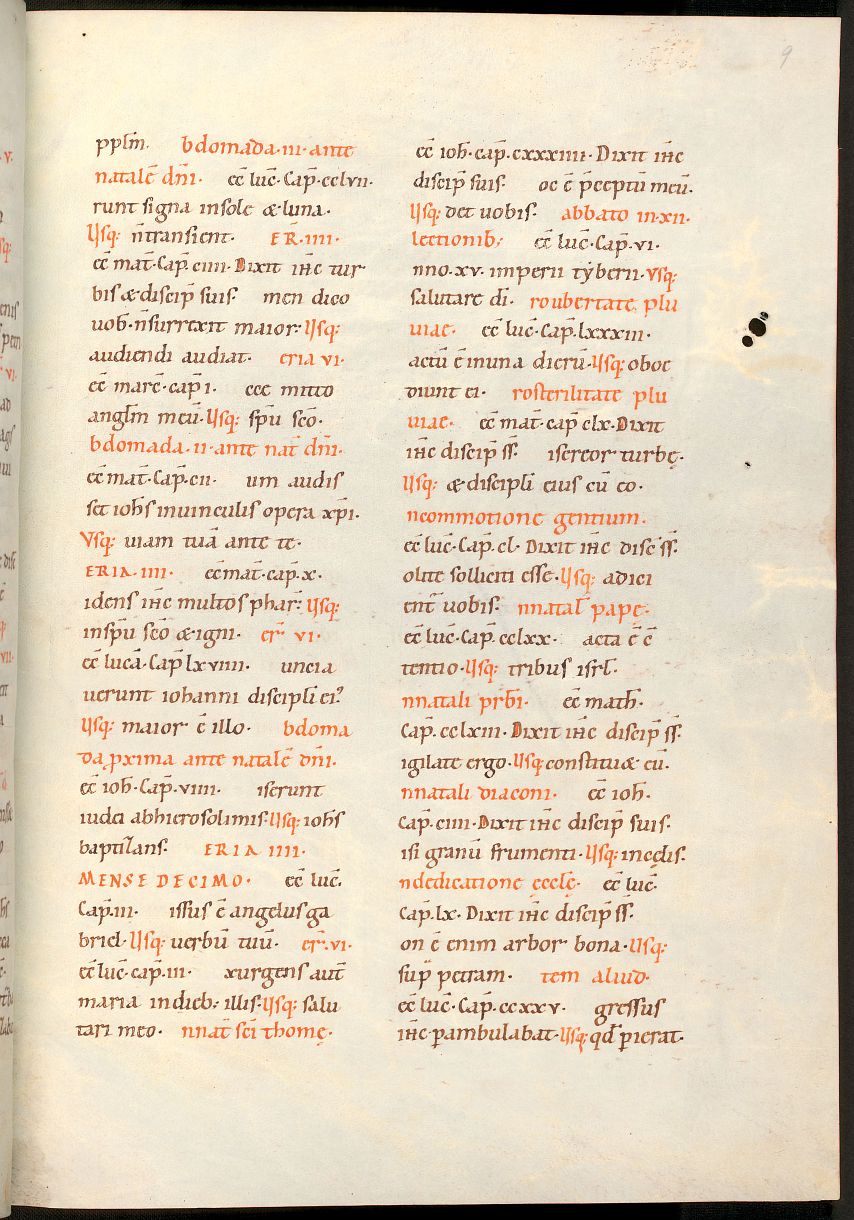 9
pplm̄. bdomada.iii.ante
natalē dn̄i. ec̄ luc̄. Cap̄.cclvii.
runt signa insole &luna.
Usq: n̄transient. ER̄.iiii.
ec̄ mat̄.Cap̄.ciiii. Dixit ih̄c tur
bis &discip̄ suis. men dico
uob̄.n̄surrexit maior: Usq:
audiendi audiat. eria vi.
ec̄ marc̄.cap̄ i. ecc mitto
anglm̄ meū. Usq: sp̄u sc̄o.
bdomada.ii.ante nat̄ dn̄i.
ec̄ mat̄.Cap̄.cii. um audis
set ioh̄s inuinculis opera xp̄i.
Vsq: uiam tuā ante te.
ERIA.iiii. ec̄ mat̄.cap̄.x.
idens ih̄c multos phar̄: Usq:
insp̄u sc̄o &igni. er̄ vi.
ec̄ lucā.Cap̄ lxviiii. uncia
uerunt iohanni discipli ei᾿
Usq: maior ē illo. bdoma
da p̱xima ante natalē dn̄i.
ec̄ ioh̄.Cap̄.viiii. iserunt
iudei abhierosolimis.Usq: ioh̄s
baptizans. ERIA IIII.
MENSE DECIMO. ec̄ luc̄.
Cap̄.iii. issus ē angelus ga
briel. Usq: uerbū tuū. er̄.vi.
ec̄ luc̄.cap̄.iii. xurgens aut̄
maria indieb; illis. Usq: salu
tari meo. nnat̄ sc̄i thomę.
ec̄ ioh̄.cap̄.cxxxiiii. Dixit ih̄c
discip̄ suis. oc ē p̄ceptū meū.
Usq: det uobis. abbato in.xii.
lectionib; ec̄ luc̄.Cap̄.vi.
nno.xv. imperii tẏberii. Vsq:
salutare dī. roubertate plu
uiae. ec̄ luc̄.Cap̄.lxxxiii.
actū ē inuna dierū. Usq: oboe
diunt ei. rosterilitate plu
uiae. ec̄ mat̄.cap̄ clx. Dixit
ih̄c discip̄ ss̄. isereor turbę.
Usq: &discipli eius cū eo.
ncommotione gentium.
ec̄ luc̄.Cap̄.cl. Dixit ih̄c disc ss̄.
olite solliciti esse. Usq: adici
ent̄ uobis. nnatal̄ papę.
ec̄ luc̄.Cap̄ cclxx. acta ē c̄
tentio. Usq: tribus isrl̄.
nnatali prb̄i. ec̄ math̄.
Cap̄.cclxiii. Dixit ih̄c discip̄ ss̄.
igilate ergo. Usq: constitu& eū.
nnatali diaconi. ec̄ ioh̄.
Cap̄.ciiii. Dixit ih̄c discip̄ suis.
isi granū frumenti. Usq: incęlis.
ndedicatione eccl̄ę. ec̄ luc̄.
Cap̄.lx. Dixit ih̄c discip̄ ss̄.
on ē enim arbor bona. Usq:
sup̄ petram. tem aliud.
ec̄ luc̄.Cap̄.ccxxv. gressus
ih̄c p̱ambulabat. Usq: qd̄ p̱ierat.